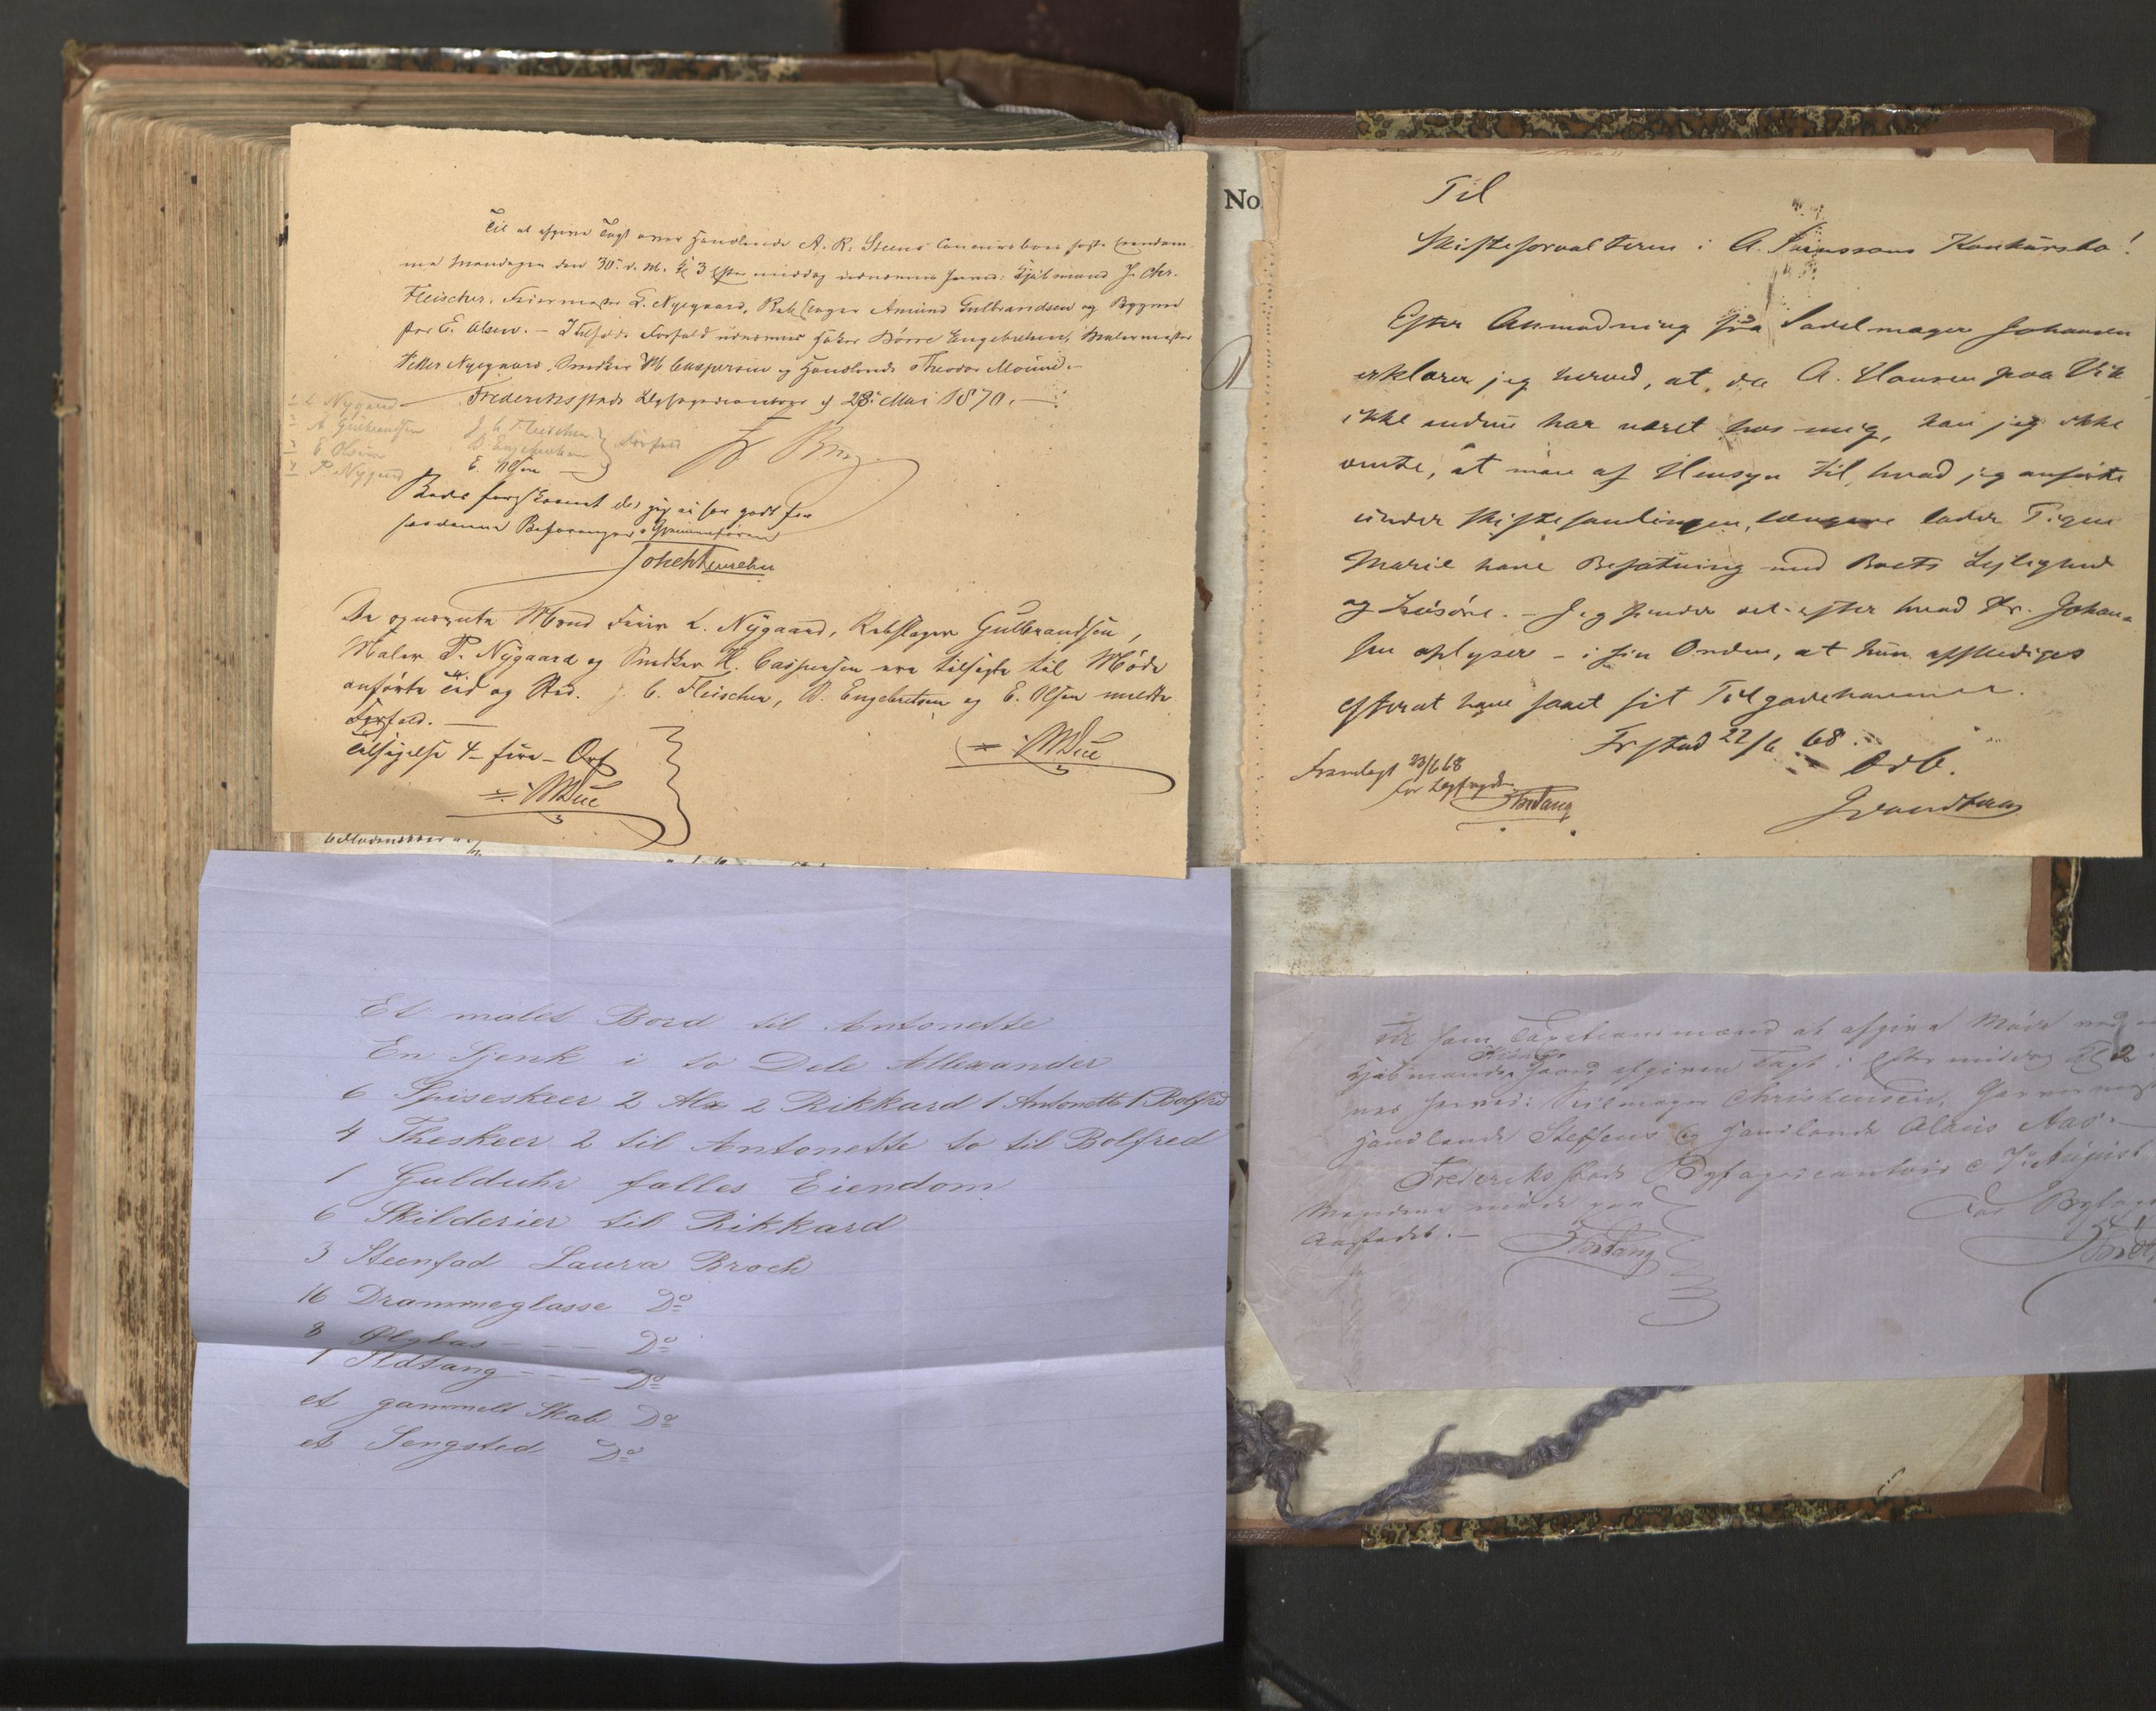 Til at afgive Taxt over Handlende A. R. Steens Concursboes faste Eiendom
me Mandagen den 30. d. M. Kl 3 Eftermiddag udnævnes herved: Kjøbmand J. Chr.
Fleischer, Feiermester L. Nygaard, Rebslager Amund Gulbrandsen og Bygme
ster E. Olsen. – I Tilfælde Forfald udnævnes Høker Børre Engebretsen, Malermester
Petter Nyegaard, Snedker Caspersen og Handlende Theodor
Frederiksstads Byfogedcontor 28. Mai 1870.
1 L. Nygaard
2 A Gulbrandsen
3 E. Olsen
4 P. Nygaard
J. C. Fleischer
B. Engebretsen
E. Olsen
Forfald
De opnævnte Mænd Feier L. Nygaard, Rebslager Gulbrandsen,
Maler P. Nygaard og Snedker H. Caspersen ere tilsagte til Møde
anførte Tid og Sted. J. C. Fleischer, B. Engebretsen og E. Olsen meldte
Forfald.
Tilsigelse 4 – fire – Ort
MDue
MDue
No
Til
Skifteforvalteren i A. Konkursbo!
Efter Anmodning fra Sadelmager Johansen
erklærer jeg herved, at, da A. Hansen paa Vik
ikke endnu har været hos mig, kan jeg ikke
vente, at man af Hensyn til, hvad jeg anførte
under Skiftesamlingen, længere lader Pigen
Marie have Befatning med Boets Leilighed
og Løsøre. – Jeg finder det efter hvad Hr. Johan-
sen oplyser – i sin Orden, at hun afskediges
efterat have faaet sit Tilgodehavende.
Frstad 22/6 68
Ærb.
Fremlagt 23/6 68
Et malet Bord til Antonette
En Sjenk i to Dele Allexander
6 Spiseskeer 2 Alx 2 Rikkard 1 Antonette 1 Bolfred
4 Theskeer 2 til Antonette to til Bolfred
1 Gulduhr falles Eiendom
6 Skilderier til Rikkard
3 Steenfad Laura Broch
16 Drammeglasse Do
8 Ølglas - - - Do
1 Ildtang - - - Do
et gammelt Skab Do
et Sengsted Do
til som Taxationsmænd at afgive Møde ved
Kjøbmand Gaard afgiven Taxt i Eftermiddag Kl 2
nes herved: Seilmager Christensen,
Handlende Steffens og Handlende Olaus Aas. –
Frederiksstads Byfogedcontoir d 7. August
Mændene mødte paa
Aastedet. –